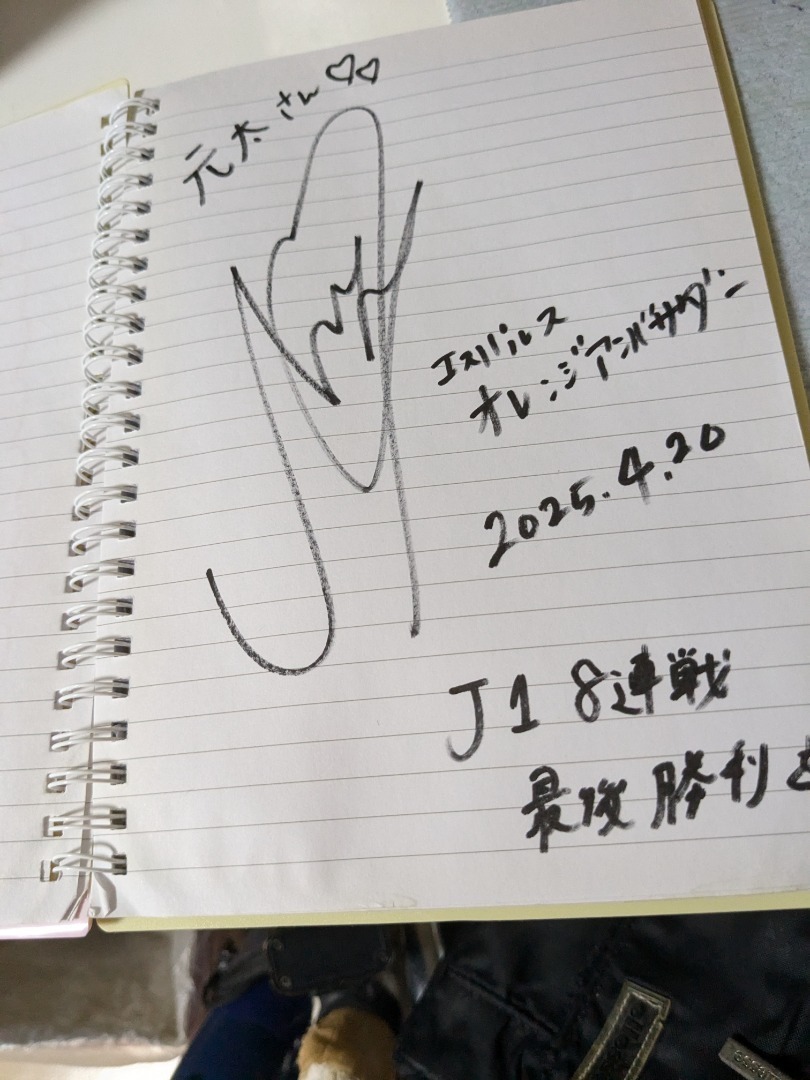 元太さん♡♡
エスパルス
オレンジアンバサダー
2025.4.20
J1 8連戦
最後勝利